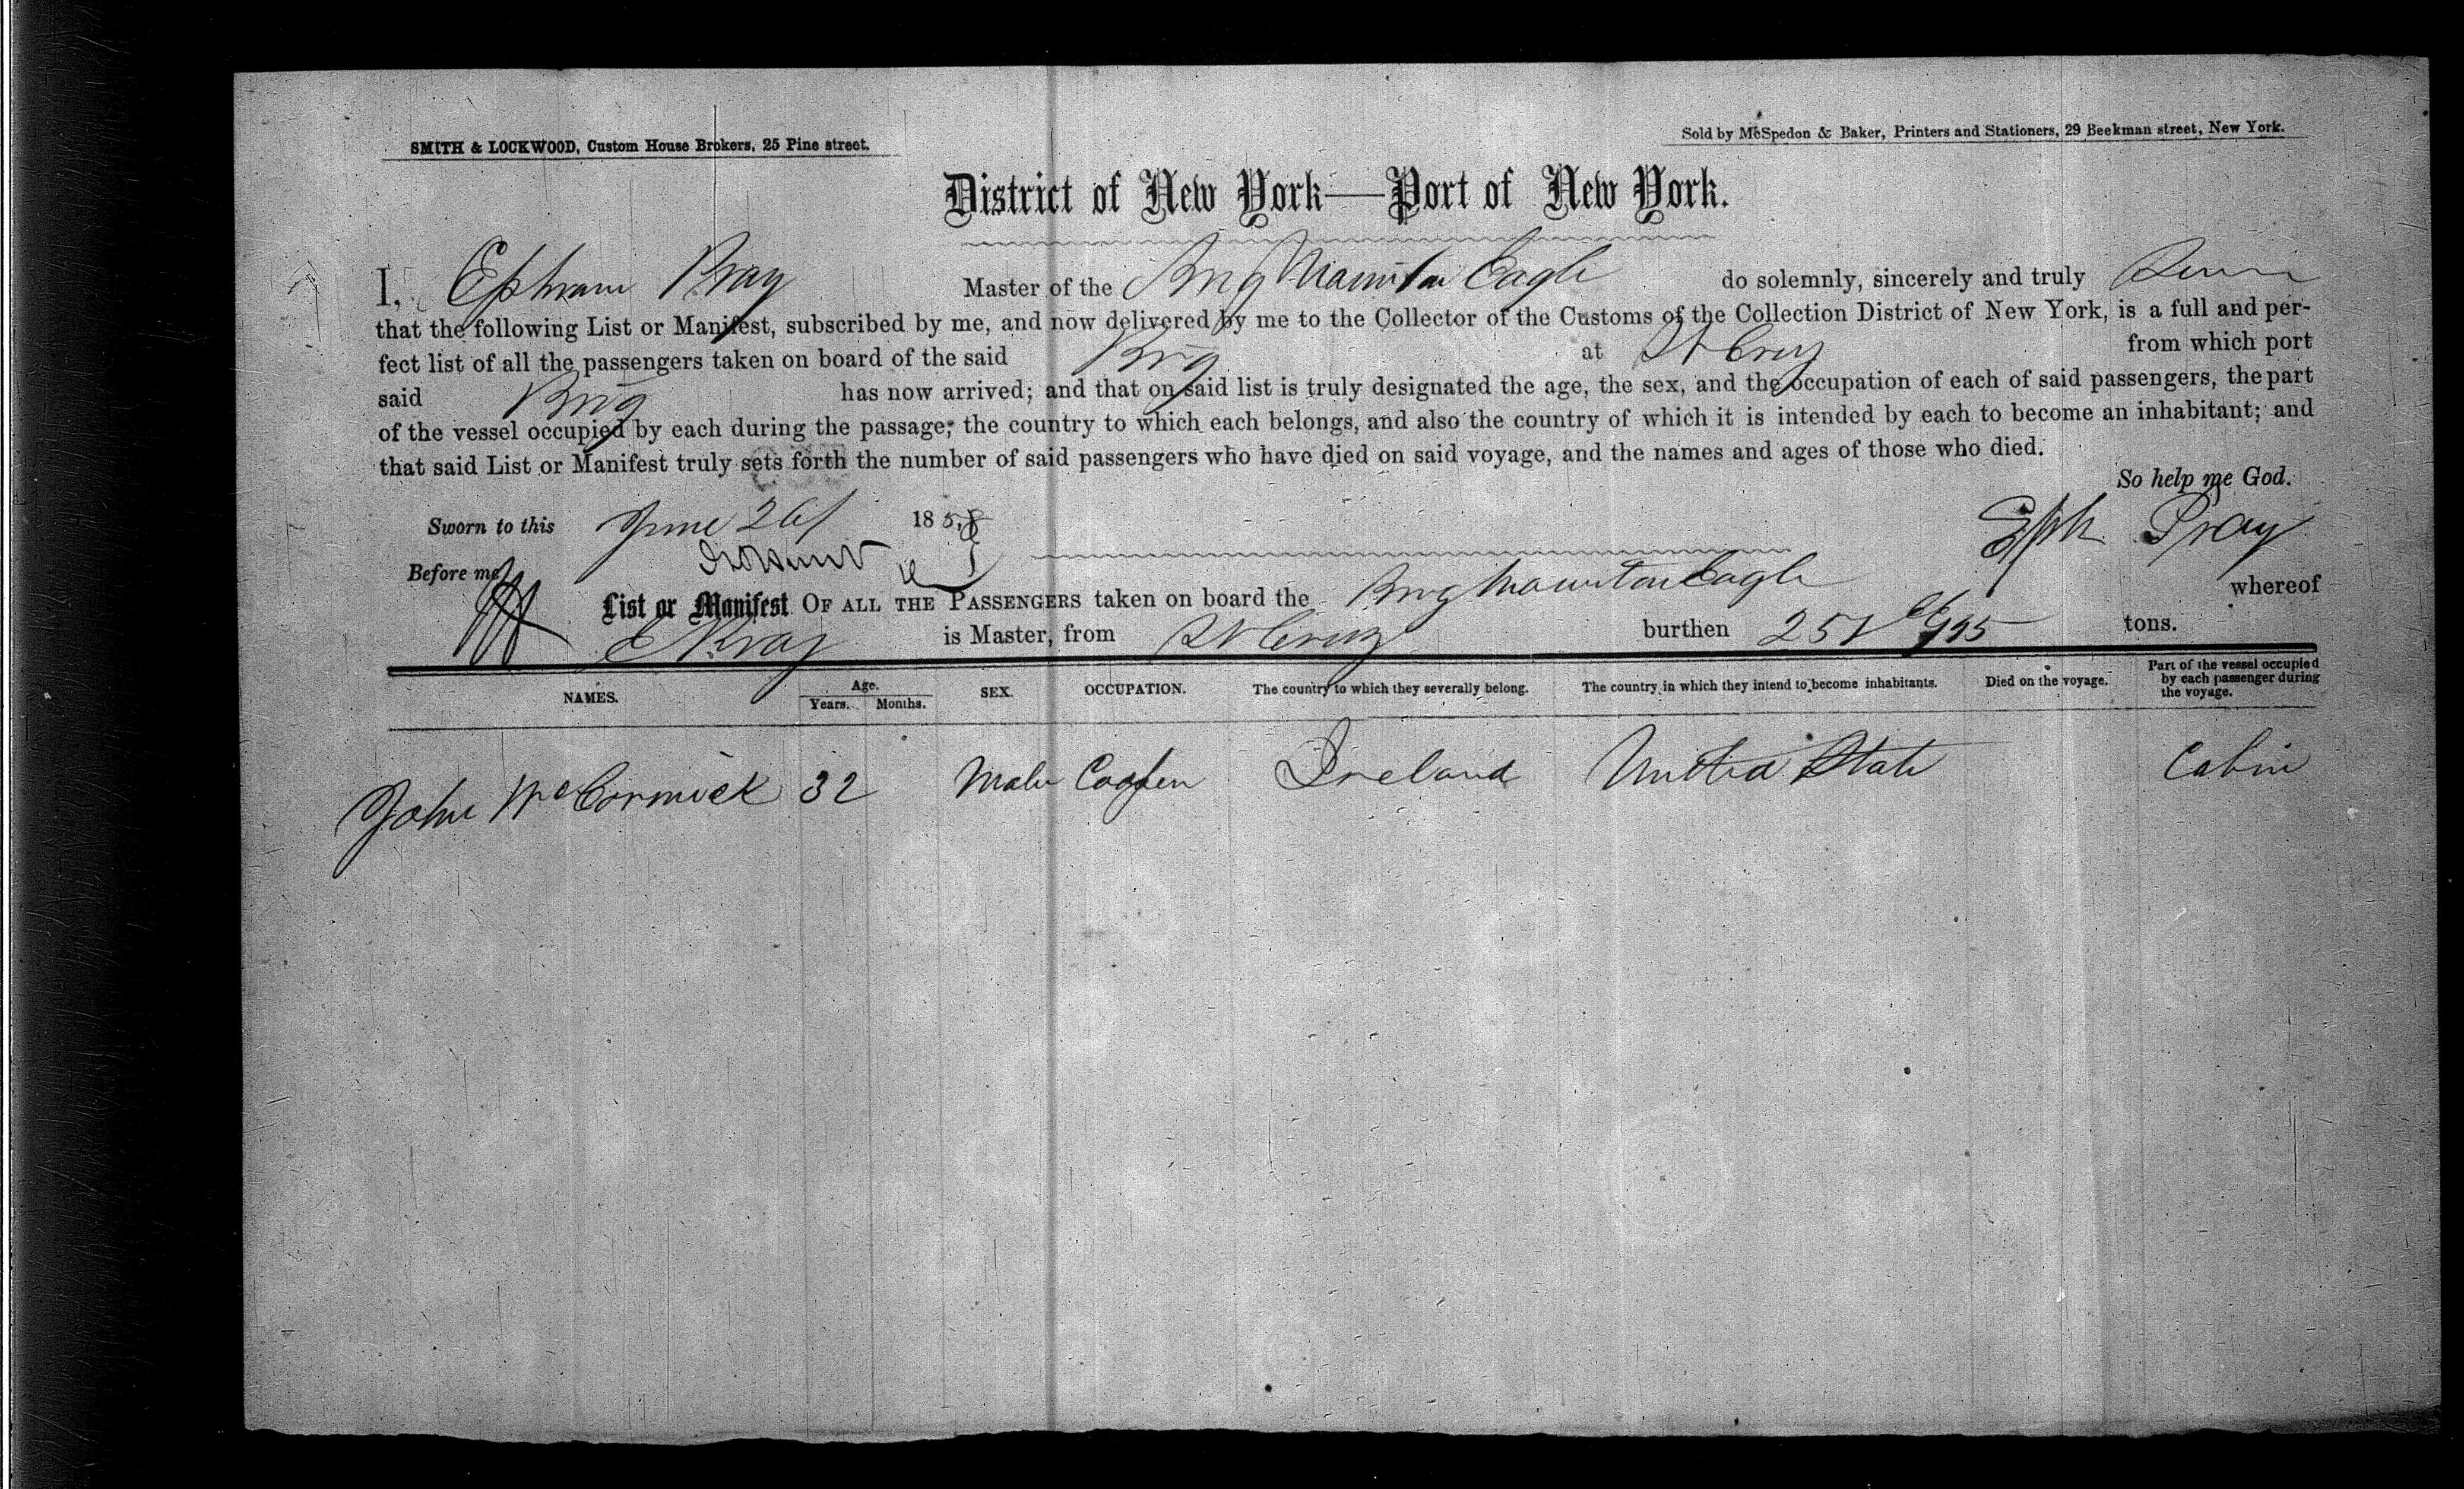 SMITH & LOCKWOOD, Custom House Brokers, 25 Pine street.
Sold by McSpedon & Baker, Printers and Stationers, 29 Beekman street, New York.
District of New York—Port of New York.
I, Ephram Pray Master of the Brig Mountain Eagle do solemnly, sincerely and truly Swear
that the following List or Manifest, subscribed by me, and now delivered by me to the Collector of the Customs of the Collection District of New York, is a full and per-
fect list of all the passengers taken on board of the said Brig at St Croix from which port
said Brig has now arrived; and that on said list is truly designated the age, the sex, and the occupation of each of said passengers, the part
of the vessel occupied by each during the passage; the country to which each belongs, and also the country of which it is intended by each to become an inhabitant; and
that said List or Manifest truly sets forth the number of said passengers who have died on said voyage, and the names and ages of those who died.
So help me God.
Sworn to this June 26 1858 Eph Pray
Before me
List or Manifest OF ALL THE PASSENGERS taken on board the Brig Mountain Eagle whereof
E Pray is Master, from St Croix burthen tons.
NAMES. Age. Years. Months. SEX. OCCUPATION. The country to which they severally belong. The country in which they intend to become inhabitants. Died on the voyage. Part of the vessel occupied by each passenger during the voyage.
John McCormick 32 Male Cooper Ireland United State Cabin